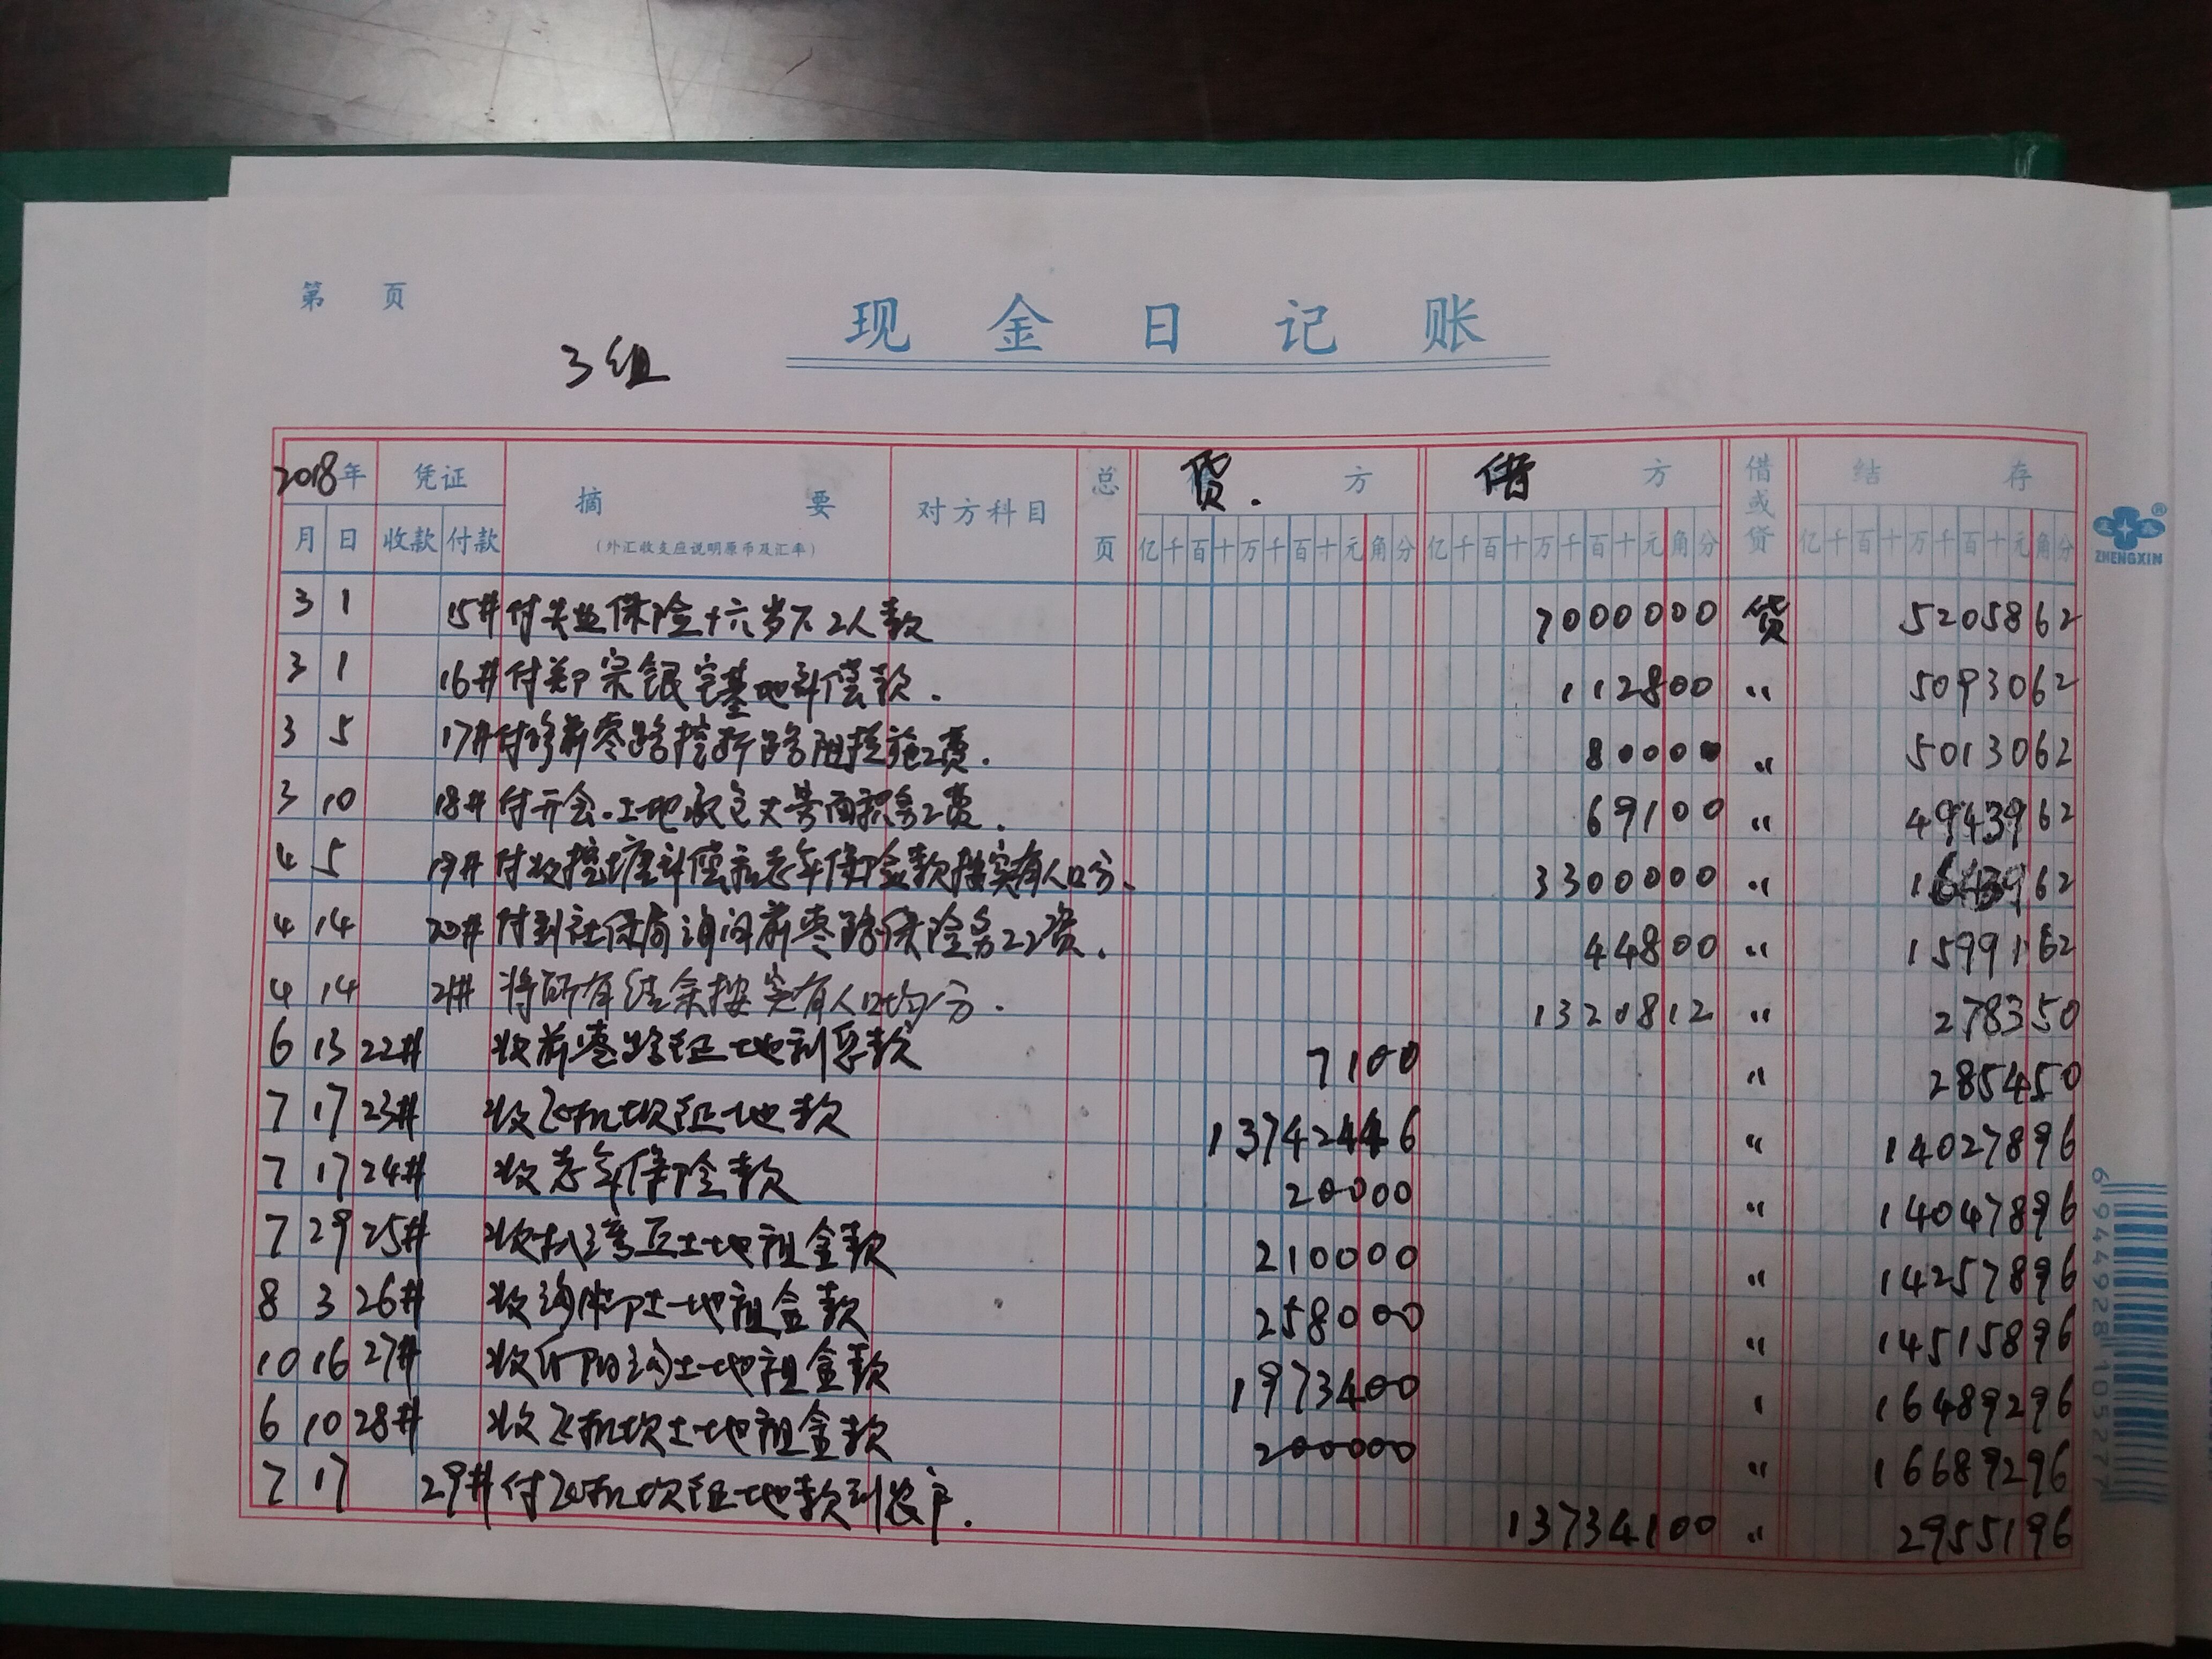 第 页
现 金 日 记 账
3组
2018年 凭证 摘 要 对方科目 总页 贷. 方 借 方 借或贷 结 存
月 日 收款 付款 (外汇收支应说明原币及汇率) 亿千百十万千百十元角分 亿千百十万千百十元角分 亿千百十万千百十元角分
3 1 15# 付失业保险十六岁下2人款 7000000 贷 5205862
3 1 16# 付郑宗银宅基地补偿款. 112800 〃 5093062
3 5 17# 付修前枣路挖断路阻挡施工费. 80000 〃 5013062
3 10 18# 付开会.土地承包丈量面积务工费. 69100 〃 4943962
4 5 19# 付收挖塘补偿款老年保险款按实有人口分. 3300000 〃 1643962
4 14 20# 付到社保局询问前枣路保险务工资. 44800 〃 1599162
4 14 21# 将所有结余按实有人口均分. 1320812 〃 278350
6 13 22# 收前枣路征土地利息款 7100 〃 285450
7 17 23# 收飞机坝征地款 13742446 〃 14027896
7 17 24# 收老年保险款 20000 〃 14047896
7 29 25# 收土地租金款 210000 〃 14257896
8 3 26# 收土地租金款 258000 〃 14515896
10 16 27# 收土地租金款 1973400 〃 16489296
6 10 28# 收飞机坝土地租金款 200000 〃 16689296
7 17 29# 付飞机坝征地款到农户. 13734100 〃 2955196
ZHENGXIN
6944928105277